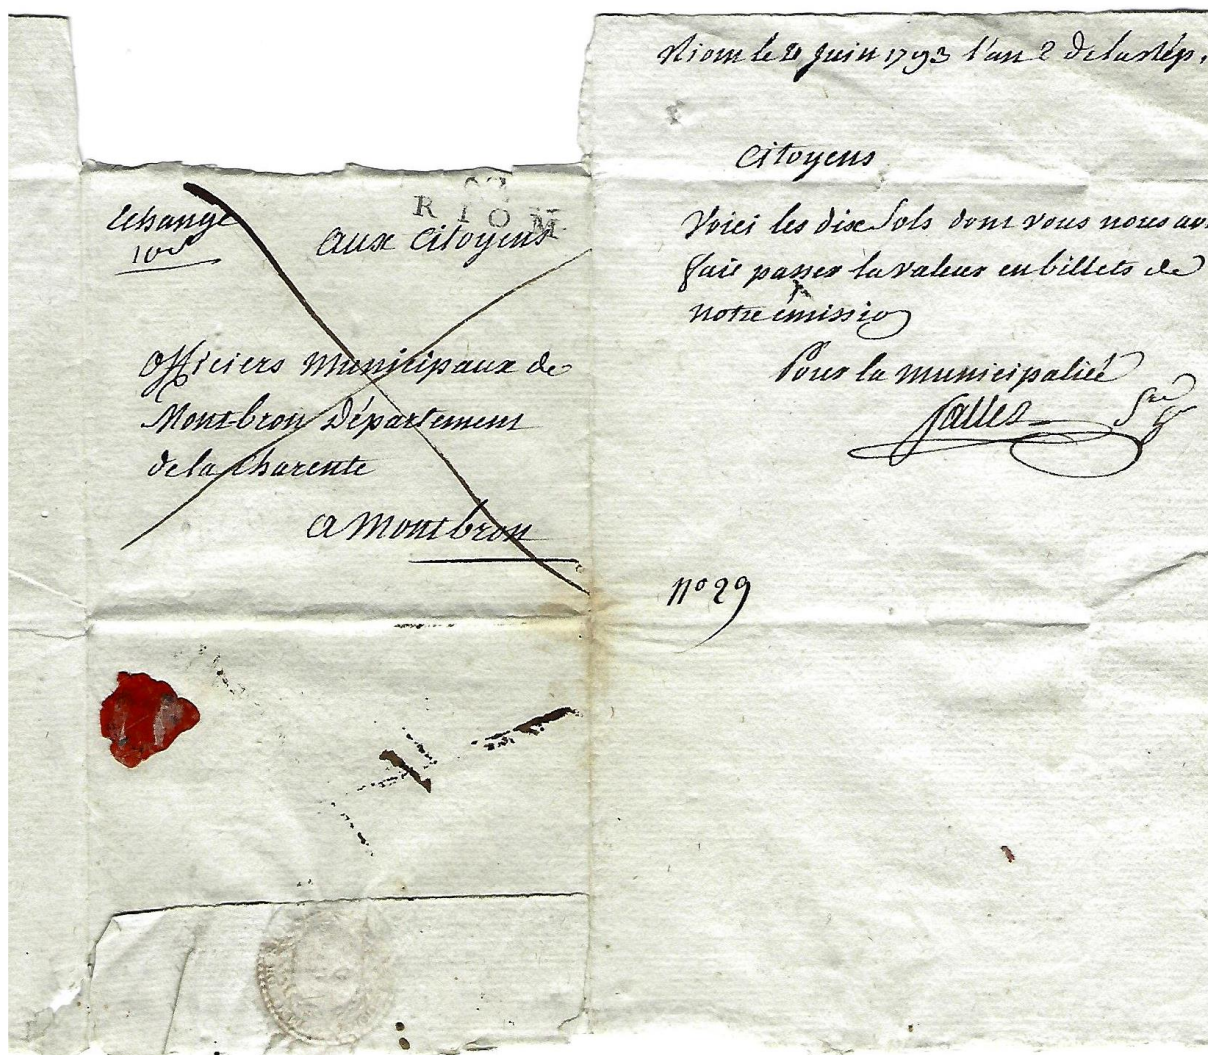 Echange
10s
RIOM
Aux Citoyens
Officiers Municipaux de
Montbron Département
de la Charente
A Montbron
Riom le Juin 1793 l'an 2 de la Rép.
Citoyens
Voici les dix Sols dont vous nous av
fait passer la valeur en billets de
notre émission
Pour la municipalité
Salles
N° 29